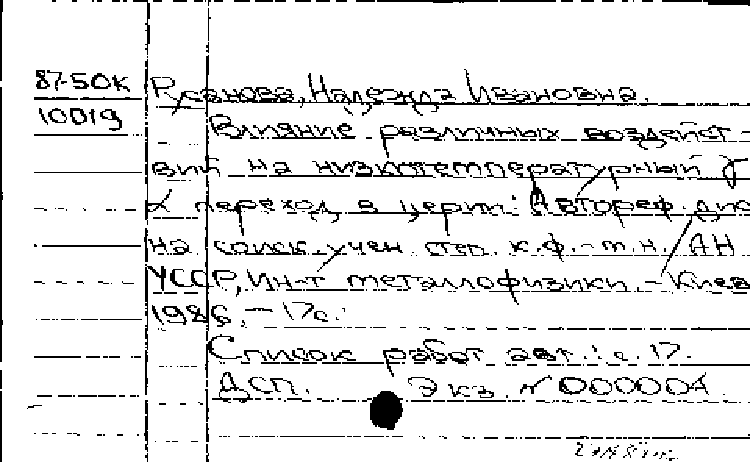 87-50К Русанова, Надежда Ивановна.
10019
Влияние различных воздейст-
вий на низкотемпературный γ
α переход в церии: Автореф. дис
на соиск. учен. степ. к.ф.-т.н. АН
УССР, Ин-т металлофизики. - Киев
1986. - 17с.
Список работ авт.: с. 17.
ДСП. Экз. № 000004